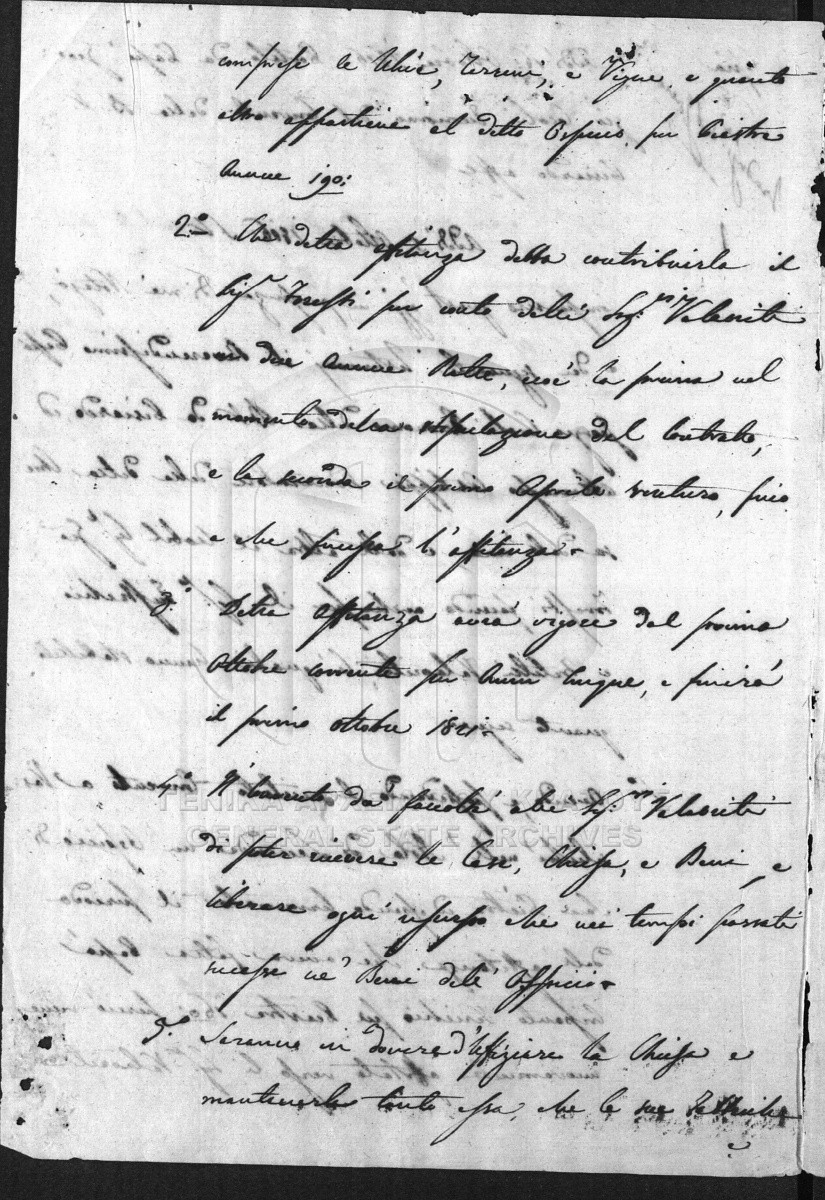 comprese le Ulive, Terreni, e Vigne e quanto
altro appartiene al detto Ospizio, per Piastre
Annue 190:
2.° Che detta affitanza debba contribuirla il
Sig.r per conto delli Sig:ri Velasiti
due Annue Ratte, cioè la prima nel
momento della stipulazione del Contratto,
e la seconda il primo Aprile venturo, fino
a che finisca l'affitanza.
3.° Detta Affitanza avrà vigore dal primo
Ottobre corrente per Anni Cinque, e finirà
il primo ottobre 1821.
4.° da facoltà alli Sig:ri Velasiti
di poter ricevere le Case, Chiesa, e Beni, e
liberare ogni che nei tempi passati
ne' Beni dell'Ospicio.
5.° Saranno in dovere d'Uffiziare la Chiesa e
mantenerla tanto essa, che le sue
ΓΕΝΙΚΑ ΑΡΧΕΙΑ ΤΟΥ ΚΡΑΤΟΥΣ
GENERAL STATE ARCHIVES